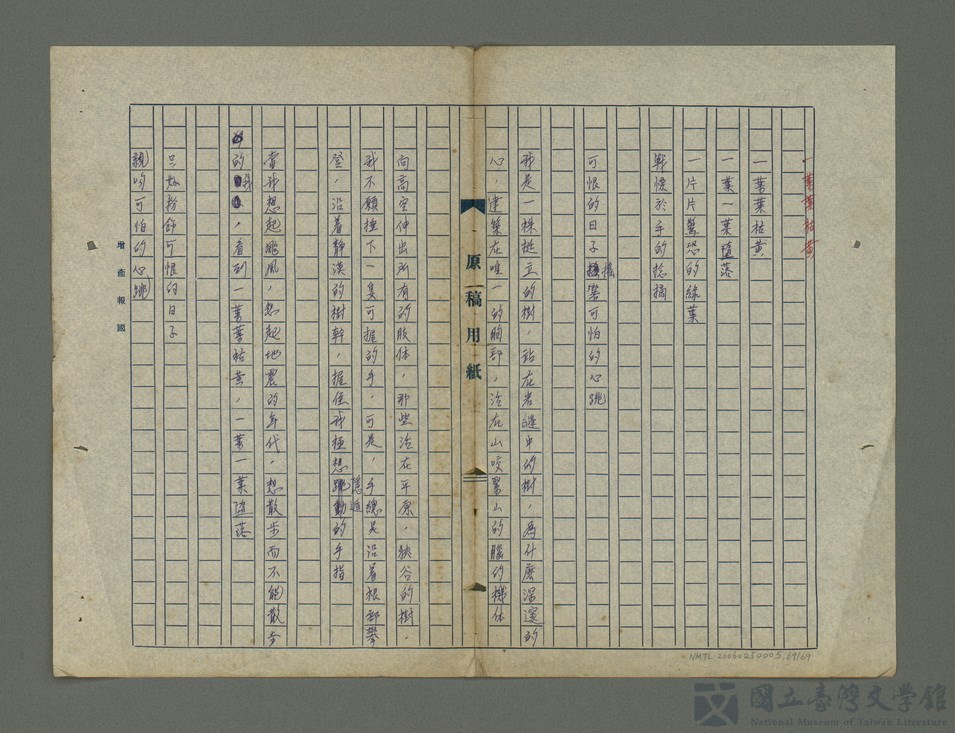 一葉葉枯黃
一葉葉枯黃
一葉一葉墮落
一片片驚恐的綠葉
戰慄於手的捻摘
可恨的日子搖響可怕的心跳
我是一株挺立的樹，站在岩縫中的樹，為什麼深邃的
心，建築在唯一的胸部，泣在山咬緊山的腦的樹休
原稿用紙
向高空伸出所有的肢体，那些泣在平原，峽谷的樹，
我不願種下一隻可握的手，可是，手總是沿着根部攀
登，沿着靜漠的樹幹，握住我極想隱遁的手指
當我想起颱風，想起地震的年代，想散步而不能散步
的我，看到一葉葉枯黃，一葉一葉墮落
只好粉飾可恨的日子
親吻可怕的心跳
增產報國
NMTL 20050250005.69/69
國立臺灣文學館
National Museum of Taiwan Literature